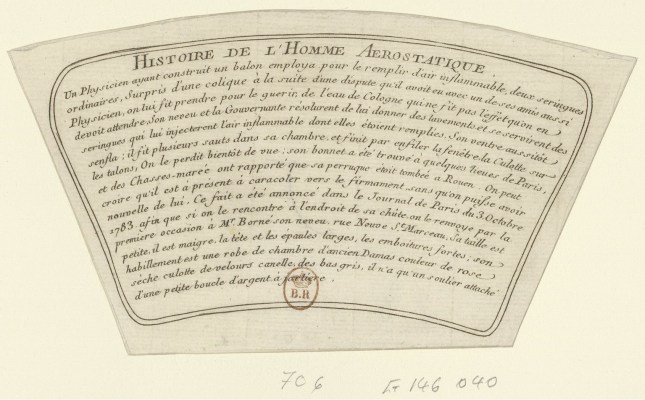 HISTOIRE DE L'HOMME AEROSTATIQUE.
Un Physicien ayant construit un balon employa pour le remplir d'air inflammable, deux seringues
ordinaires, Surpris d'une colique à la suite d'une dispute qu'il avoit eu avec un de ses amis aussi
Physicien, on lui fit prendre pour le guerir, de l'eau de Cologne qui ne fit pas l'effet qu'on en
devoit attendre. Son neveu et la Gouvernante résolurent de lui donner des lavements et se servirent des
seringues qui lui injecterent l'air inflammable dont elles étoient remplies. Son ventre aussitôt
senfla; il fit plusieurs sauts dans sa chambre, et finit par enfiler la fenêtre, la Culotte sur
les talons, On le perdit bientôt de vue; son bonnet a été trouvé à quelques lieues de Paris,
et des Chasses-marée ont rapporté que sa perruque étoit tombée a Rouen. On peut
croire qu'il est a présent à caracoler vers le firmament, sans qu'on puisse avoir
nouvelle de lui. Ce fait a été annoncé dans le Journal de Paris du 3. Octobre
1783. afin que si on le rencontre à l'endroit de sa chûte, on le renvoye par la
première occasion à Mr. Borné son neveu. rue Neuve St. Marceau, Sa taille est
petite, il est maigre, la tête et les épaules larges, les emboitures fortes; son
habillement est une robe de chambre d'ancien Damas couleur de rose
sèche culotte de velours canelle, des bas gris, il n'a qu'un soulier attaché
d'une petite boucle d'argent à jartiere.
B.R
706 G 146 040